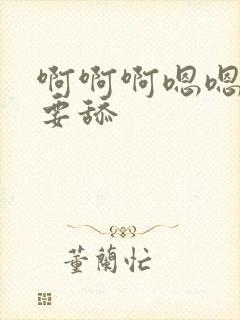 啊啊啊嗯嗯
要舔
董蘭忙